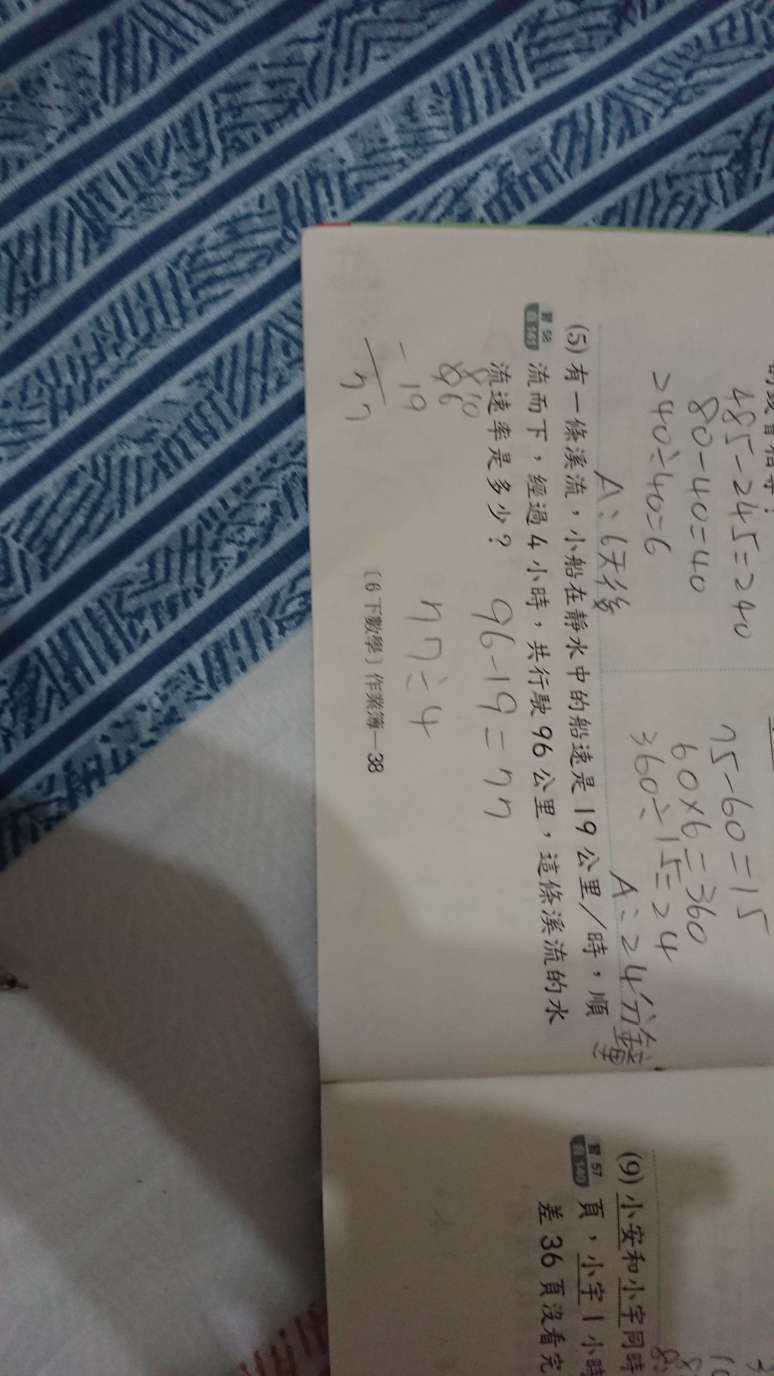 485-245=240
80-40=40
240÷40=6
A:6天後
75-60=15
60×6=360
360÷15=24
A:24分鐘
(5) 有一條溪流，小船在靜水中的船速是19公里/時，順
習58
自141
流而下，經過4小時，共行駛96公里，這條溪流的水
流速率是多少？
96-19=77
77÷4
8 10
96
-19
77
〔6下數學〕作業簿—38
(9) 小安和小宇同時
習57
自140
頁，小宇1小時
差36頁沒看完